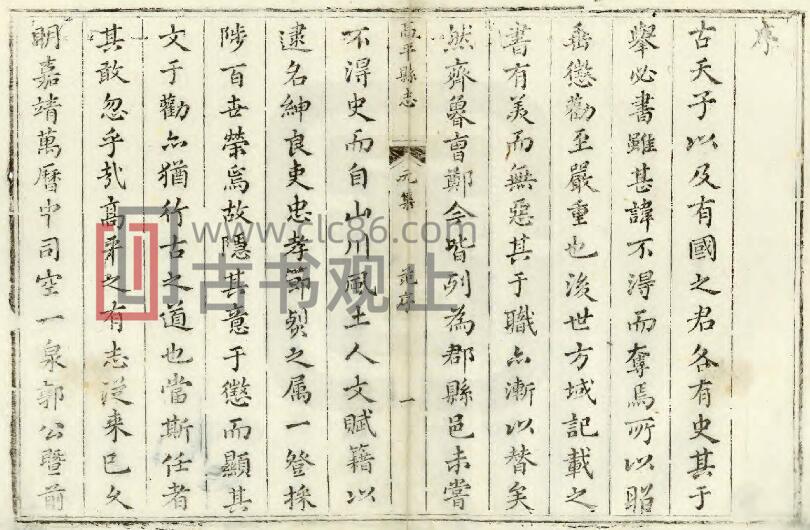 序
古天子以及有國之君各有史其于
舉必書雖甚諱不得而奪焉所以昭
垂懲勸至嚴重也後世方域記載之
書有美而無惡其于職亦漸以替矣
然齊魯曹鄭今皆列為郡縣邑未嘗
高平縣志 元集 范序 一
不得史而自山川風土人文賦籍以
逮名紳良吏忠孝節烈之属一登採
陟百世榮焉故隱其意于懲而顯其
文于勸亦猶行古之道也當斯任者
其敢忽乎哉高平之有志從来已久
明嘉靖萬曆中司空一泉郭公暨前
www.clc86.com
古书观止